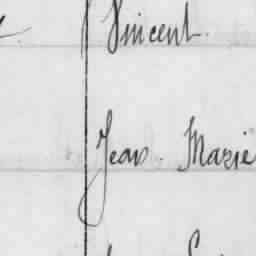 Vincent.
Jean. Marie